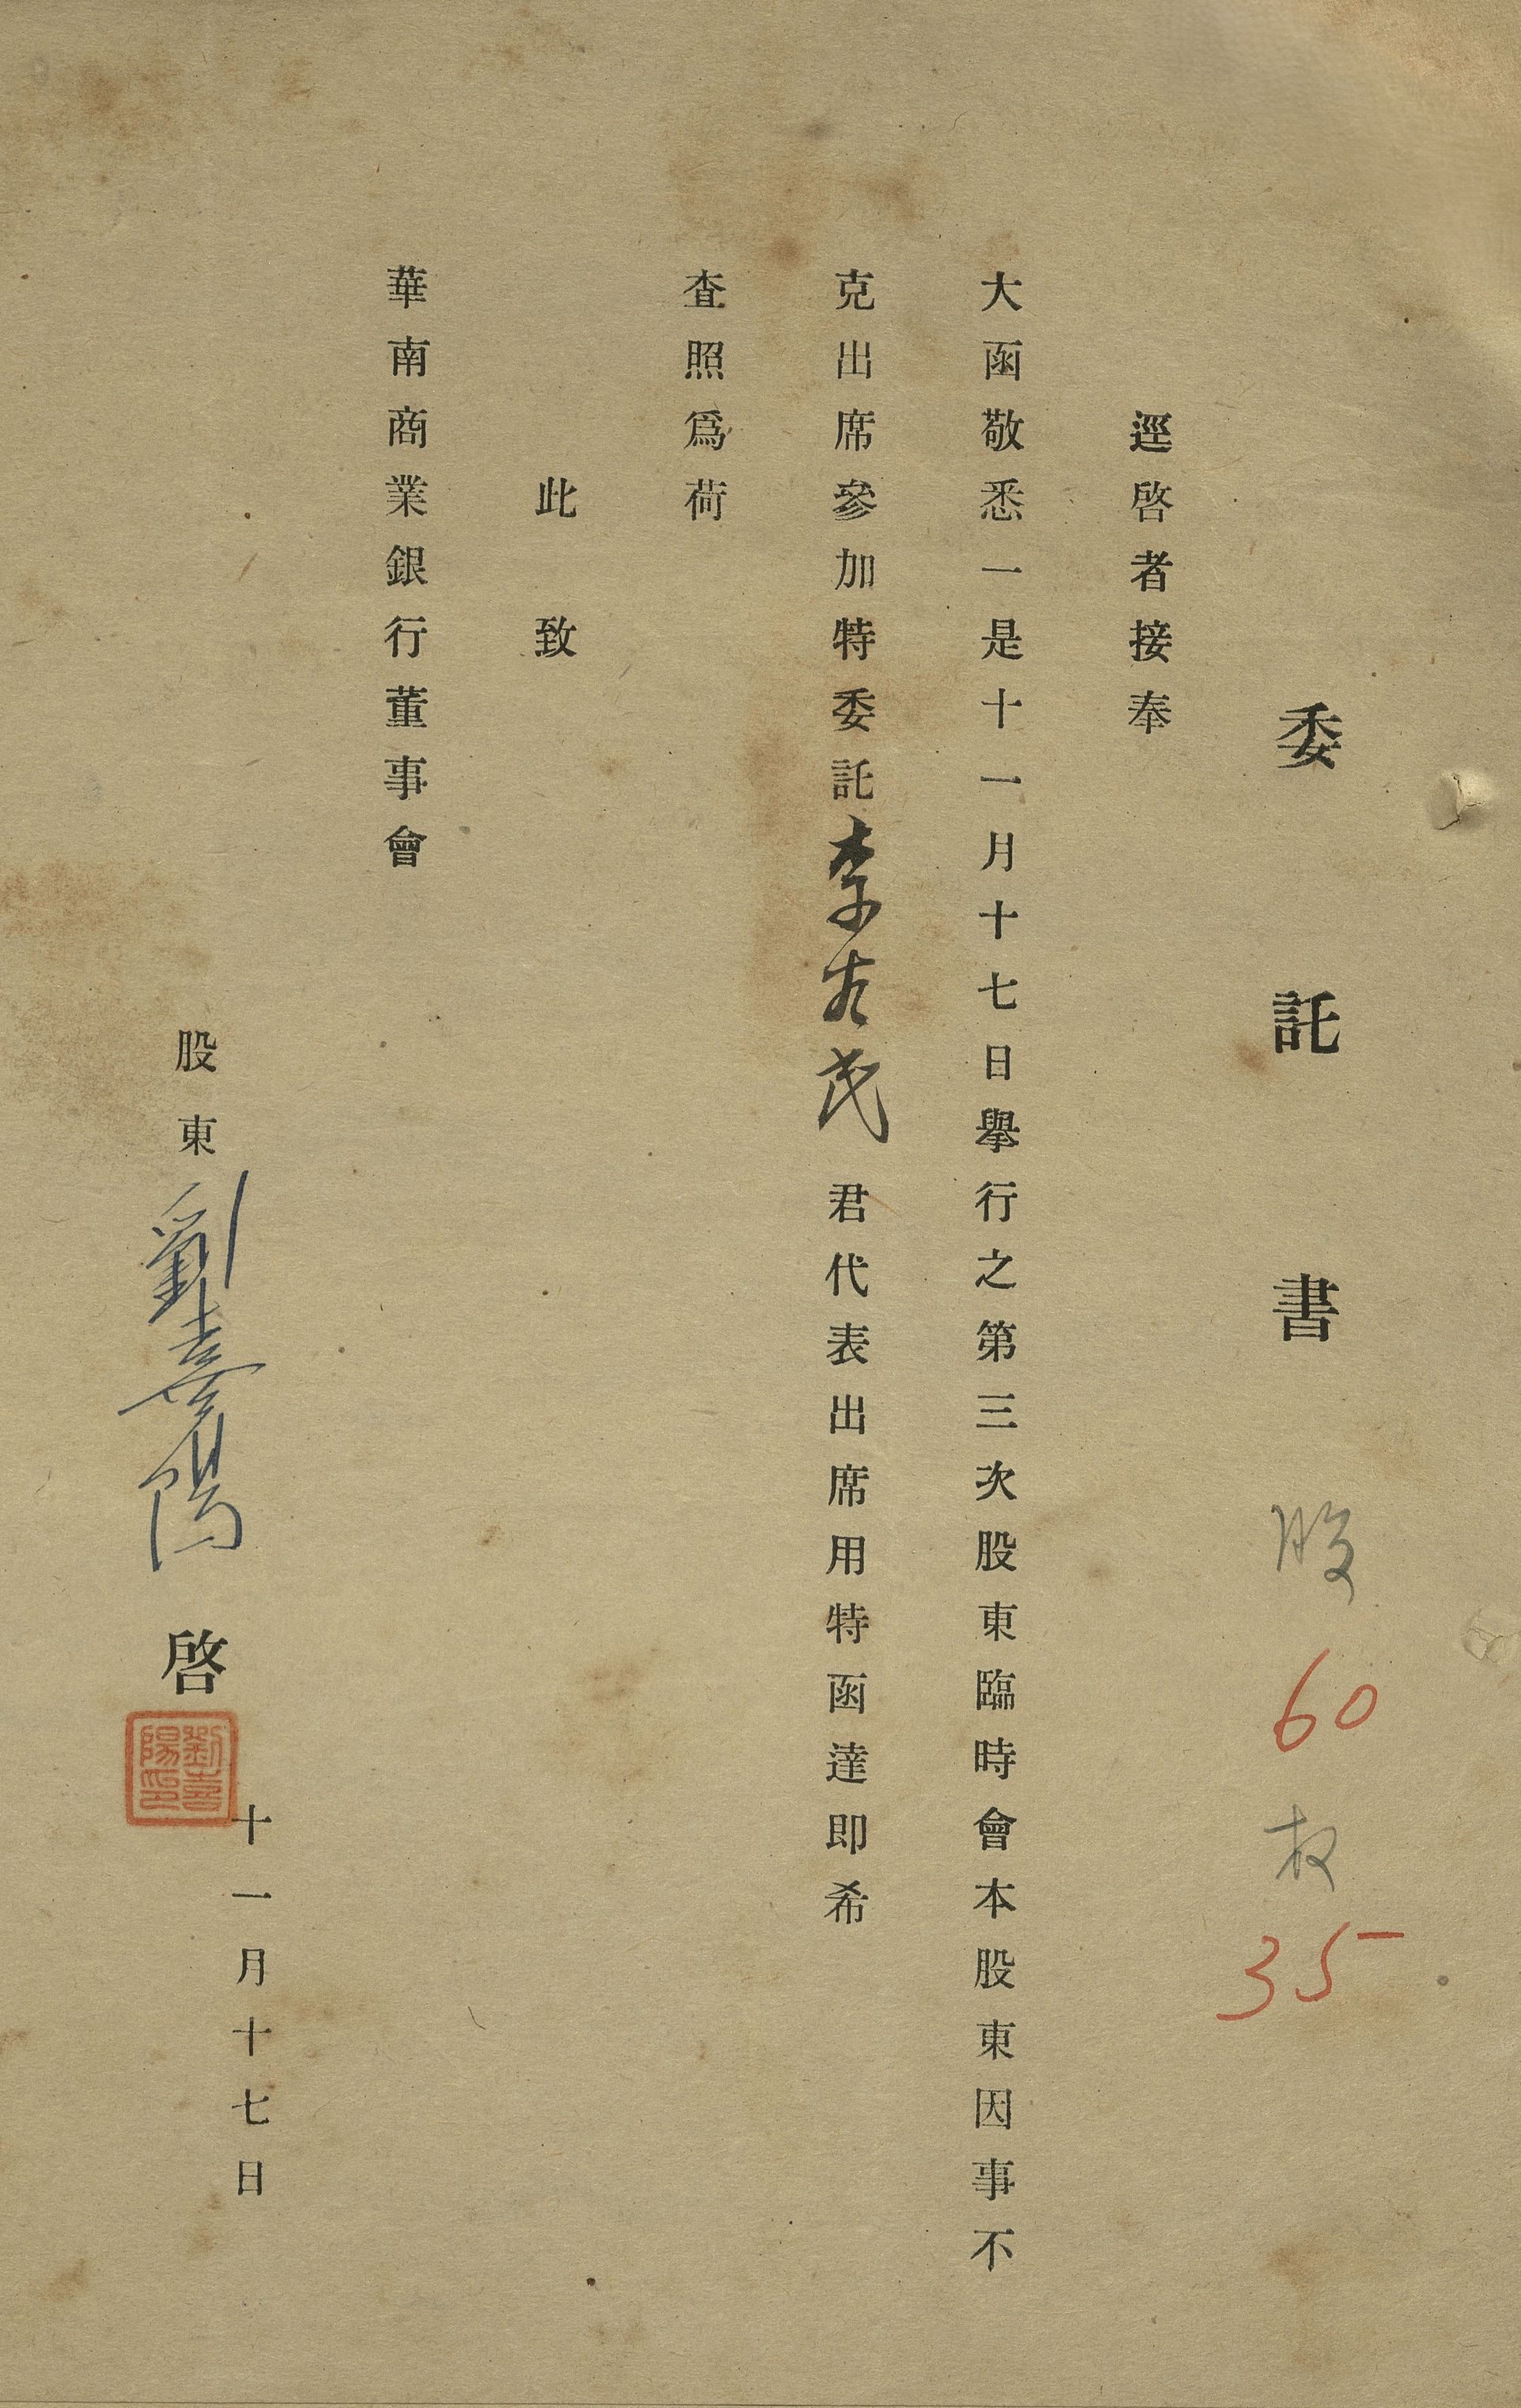 委託書 股 60 权 35
逕啓者接奉
大函敬悉一是十一月十七日舉行之第三次股東臨時會本股東因事不
克出席參加特委託李民君代表出席用特函達即希
查照爲荷
此致
華南商業銀行董事會
股東劉喜陽啓
劉喜陽印
十一月十七日